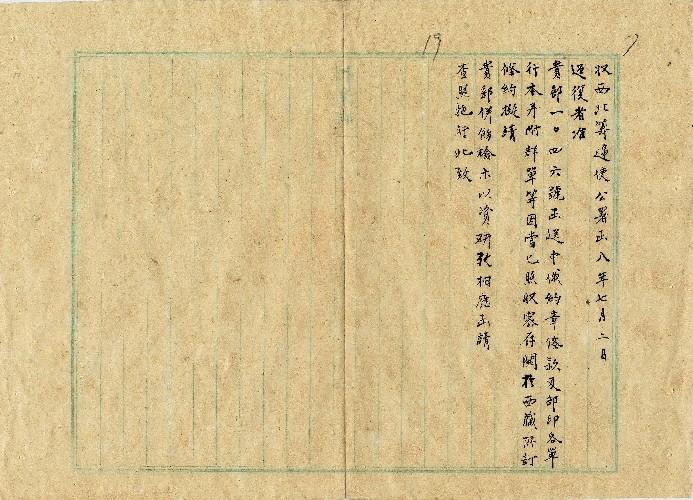 收西北籌邊使公署函八年七月二日
逕復者准
貴部一〇四六號函送中俄約章條款及部印各單
行本並附群單等因當已照收察存關於西藏所訂
條約擬請
貴部併飭檢示以資研究相應函請
查照施行此致
19